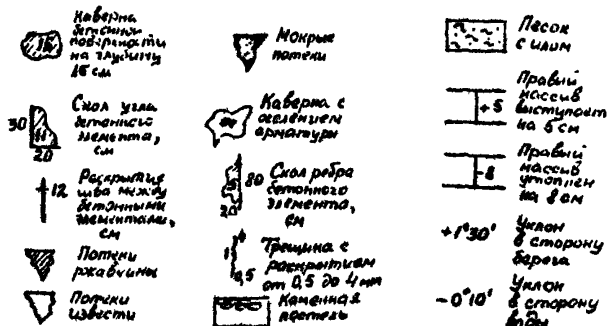 15
Каверна
бетонной
поверхности
на глубину
15 см
30
11
20
Скол угла
бетонного
элемента,
см
12
Раскрытие
шва между
бетонными
элементами,
см
Потеки
ржавчины
Потеки
извести
Мокрые
потеки
Каверна с
оголением
арматуры
80
5
20
Скол ребра
бетонного
элемента,
см
4
1
0,5
Трещина с
раскрытием
от 0,5 до 4 мм
Каменная
постель
Песок
с илом
+5
Правый
массив
выступает
на 5 см
-8
Правый
массив
утоплен
на 8 см
+1°30'
Уклон
в сторону
берега
-0°10'
Уклон
в сторону
воды